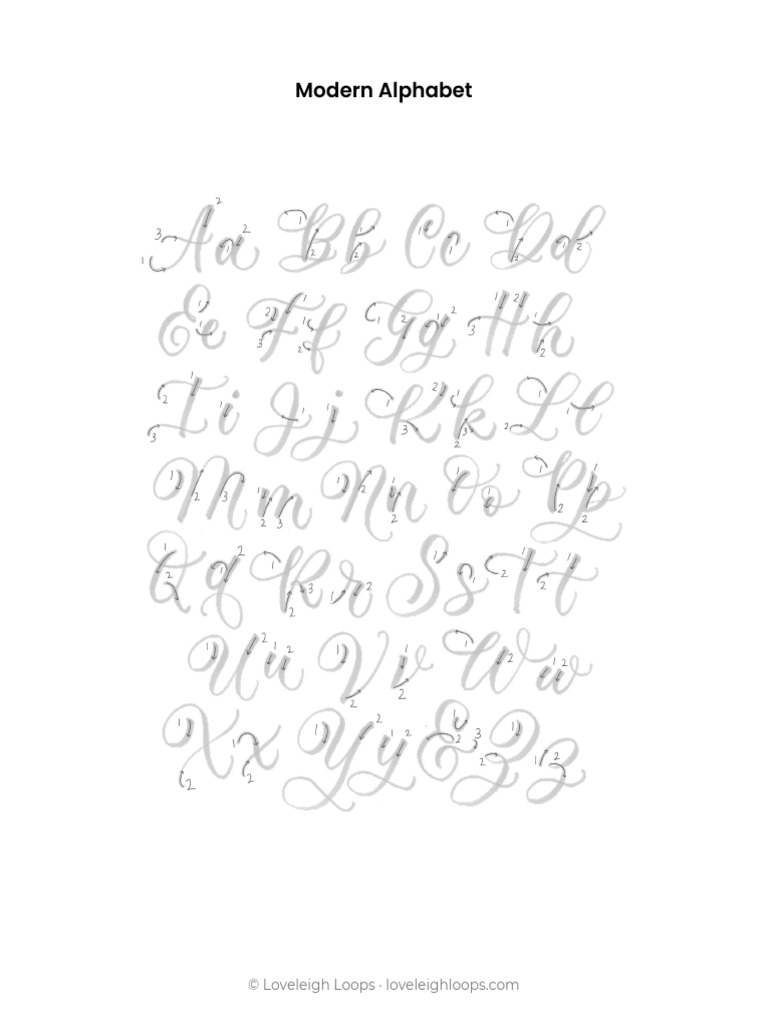 Modern Alphabet
Aa Bb Cc Dd
Ee Ff Gg Hh
Ii Jj Kk Ll
Mm Nn Oo Pp
Qq Rr Ss Tt
Uu Vv Ww
Xx Yy & Zz
© Loveleigh Loops · loveleighloops.com